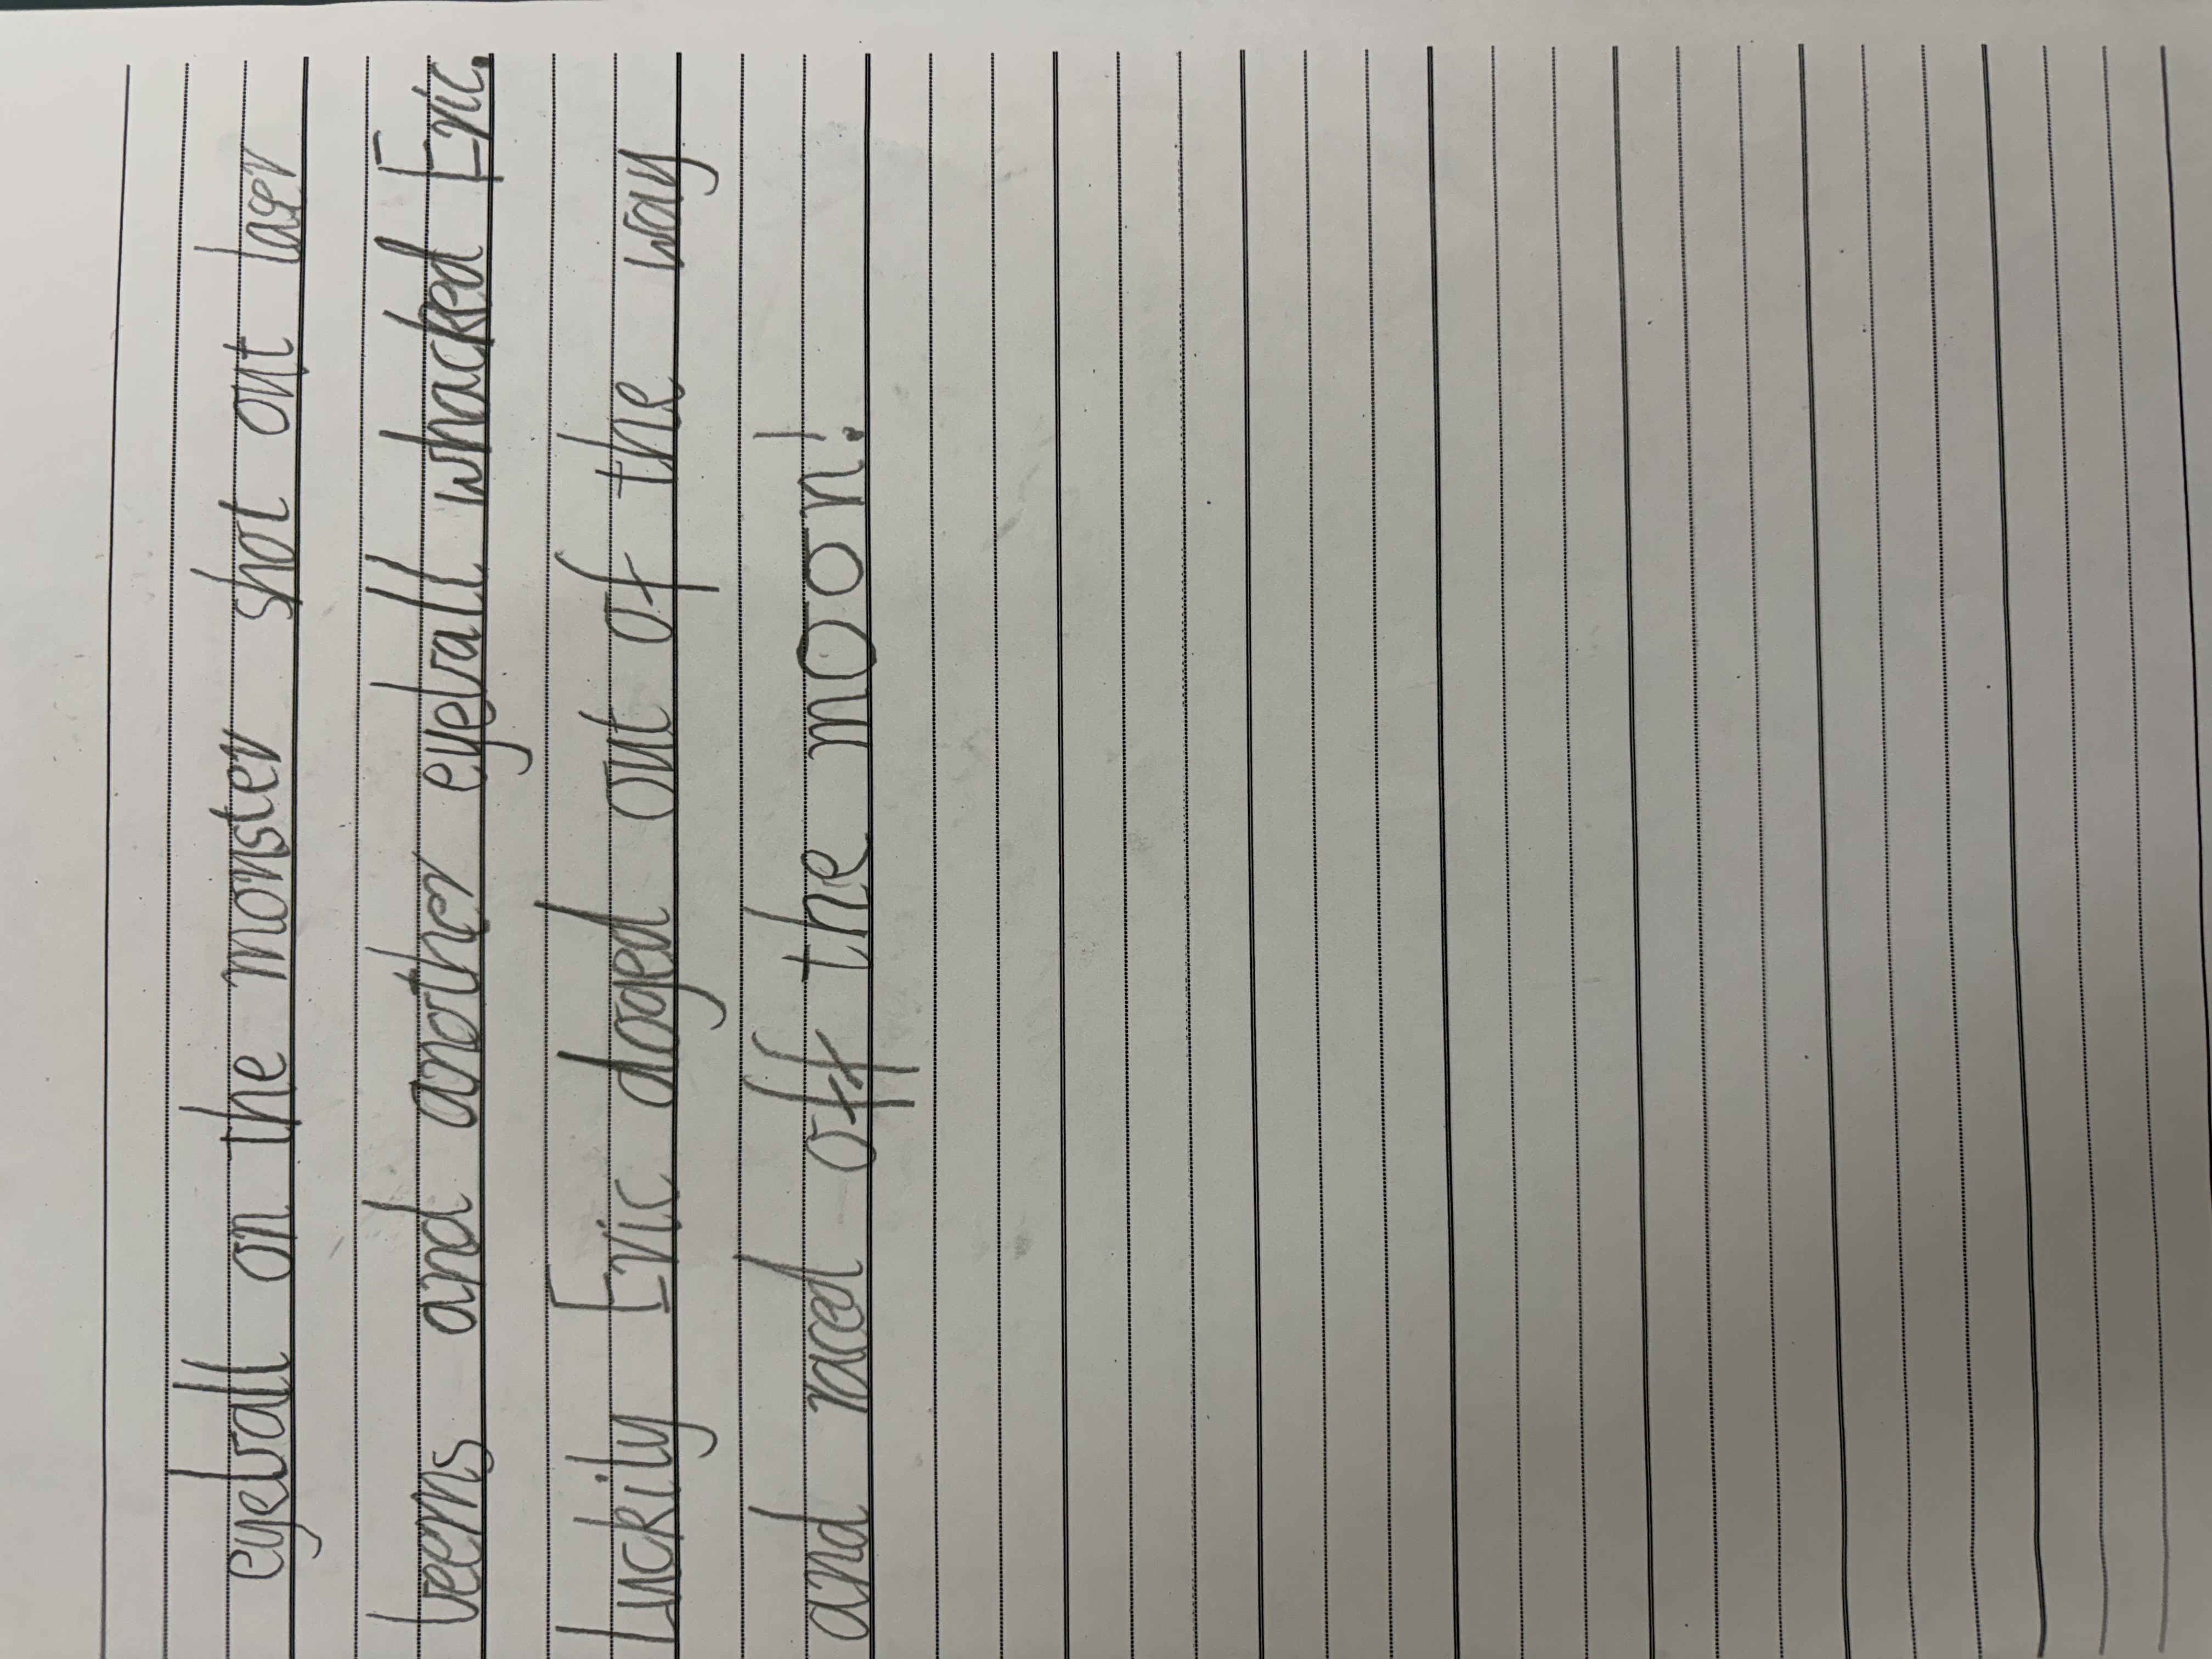 eyeball on the monster shot out laser
beems and another eyeball whacked Eric.
Luckily Eric doged out of the way
and raced off the moon!